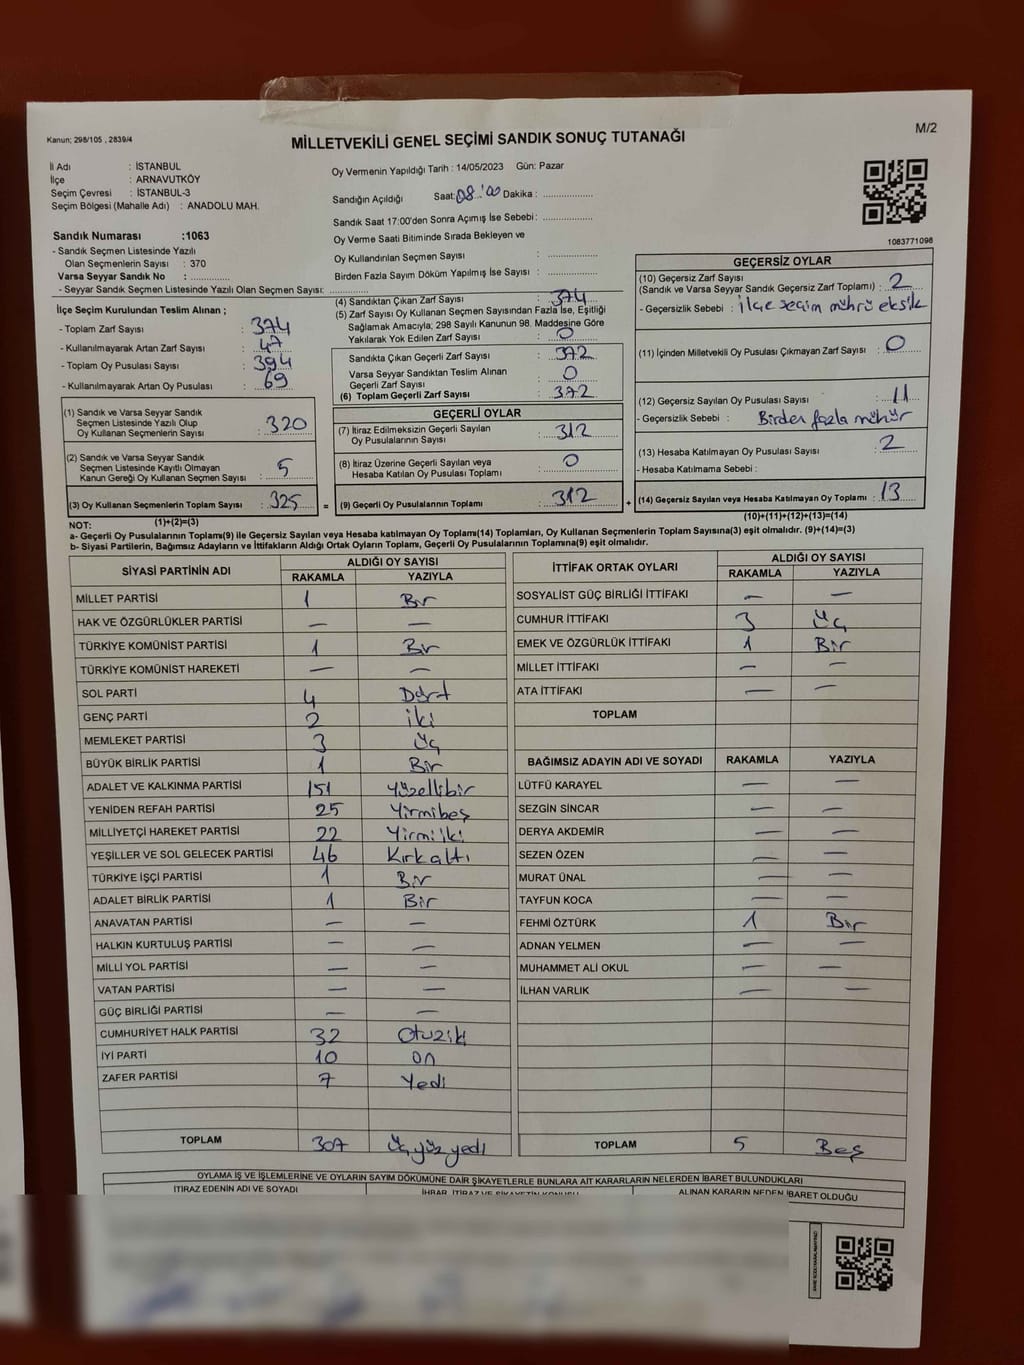 Kanun; 298/105 , 2839/4
M/2
MİLLETVEKİLİ GENEL SEÇİMİ SANDIK SONUÇ TUTANAĞI
İl Adı : İSTANBUL
İlçe : ARNAVUTKÖY
Seçim Çevresi : İSTANBUL-3
Seçim Bölgesi (Mahalle Adı) : ANADOLU MAH.
Sandık Numarası :1063
- Sandık Seçmen Listesinde Yazılı
Olan Seçmenlerin Sayısı : 370
Varsa Seyyar Sandık No : ..............
- Seyyar Sandık Seçmen Listesinde Yazılı Olan Seçmen Sayısı: ..............
Oy Vermenin Yapıldığı Tarih : 14/05/2023 Gün: Pazar
Sandığın Açıldığı Saat: 08:00 Dakika : ..............
Sandık Saat 17:00'den Sonra Açımış İse Sebebi: ..............
Oy Verme Saati Bitiminde Sırada Bekleyen ve
Oy Kullandırılan Seçmen Sayısı : ..............
Birden Fazla Sayım Döküm Yapılmış İse Sayısı : ..............
1083771098
İlçe Seçim Kurulundan Teslim Alınan ;
- Toplam Zarf Sayısı : 374
- Kullanılmayarak Artan Zarf Sayısı : 47
- Toplam Oy Pusulası Sayısı : 394
- Kullanılmayarak Artan Oy Pusulası : 69
(1) Sandık ve Varsa Seyyar Sandık
Seçmen Listesinde Yazılı Olup
Oy Kullanan Seçmenlerin Sayısı : 320
(2) Sandık ve Varsa Seyyar Sandık
Seçmen Listesinde Kayıtlı Olmayan
Kanun Gereği Oy Kullanan Seçmen Sayısı : 5
(3) Oy Kullanan Seçmenlerin Toplam Sayısı : 325
(1)+(2)=(3)
(4) Sandıktan Çıkan Zarf Sayısı : 374
(5) Zarf Sayısı Oy Kullanan Seçmen Sayısından Fazla İse, Eşitliği
Sağlamak Amacıyla; 298 Sayılı Kanunun 98. Maddesine Göre
Yakılarak Yok Edilen Zarf Sayısı : 0
Sandıkta Çıkan Geçerli Zarf Sayısı : 372
Varsa Seyyar Sandıktan Teslim Alınan
Geçerli Zarf Sayısı : 0
(6) Toplam Geçerli Zarf Sayısı : 372
GEÇERLİ OYLAR
(7) İtiraz Edilmeksizin Geçerli Sayılan
Oy Pusulalarının Sayısı : 312
(8) İtiraz Üzerine Geçerli Sayılan veya
Hesaba Katılan Oy Pusulası Toplamı : 0
= (9) Geçerli Oy Pusulalarının Toplamı : 312
GEÇERSİZ OYLAR
(10) Geçersiz Zarf Sayısı
(Sandık ve Varsa Seyyar Sandık Geçersiz Zarf Toplamı) : 2
- Geçersizlik Sebebi : İlçe seçim mührü eksik
(11) İçinden Milletvekili Oy Pusulası Çıkmayan Zarf Sayısı : 0
(12) Geçersiz Sayılan Oy Pusulası Sayısı : 11
- Geçersizlik Sebebi : Birden fazla mühür
(13) Hesaba Katılmayan Oy Pusulası Sayısı : 2
- Hesaba Katılmama Sebebi :
+ (14) Geçersiz Sayılan veya Hesaba Katılmayan Oy Toplamı : 13
(10)+(11)+(12)+(13)=(14)
NOT:
a- Geçerli Oy Pusulalarının Toplamı(9) ile Geçersiz Sayılan veya Hesaba katılmayan Oy Toplamı(14) Toplamları, Oy Kullanan Seçmenlerin Toplam Sayısına(3) eşit olmalıdır. (9)+(14)=(3)
b- Siyasi Partilerin, Bağımsız Adayların ve İttifakların Aldığı Ortak Oyların Toplamı, Geçerli Oy Pusulalarının Toplamına(9) eşit olmalıdır.
SİYASİ PARTİNİN ADI ALDIĞI OY SAYISI
RAKAMLA YAZIYLA
MİLLET PARTİSİ 1 Bir
HAK VE ÖZGÜRLÜKLER PARTİSİ — —
TÜRKİYE KOMÜNİST PARTİSİ 1 Bir
TÜRKİYE KOMÜNİST HAREKETİ — —
SOL PARTİ 4 Dört
GENÇ PARTİ 2 iki
MEMLEKET PARTİSİ 3 Üç
BÜYÜK BİRLİK PARTİSİ 1 Bir
ADALET VE KALKINMA PARTİSİ 151 Yüzellibir
YENİDEN REFAH PARTİSİ 25 Yirmibeş
MİLLİYETÇİ HAREKET PARTİSİ 22 Yirmiiki
YEŞİLLER VE SOL GELECEK PARTİSİ 46 Kırkaltı
TÜRKİYE İŞÇİ PARTİSİ 1 Bir
ADALET BİRLİK PARTİSİ 1 Bir
ANAVATAN PARTİSİ — —
HALKIN KURTULUŞ PARTİSİ — —
MİLLİ YOL PARTİSİ — —
VATAN PARTİSİ — —
GÜÇ BİRLİĞİ PARTİSİ — —
CUMHURİYET HALK PARTİSİ 32 Otuziki
İYİ PARTİ 10 on
ZAFER PARTİSİ 7 Yedi
TOPLAM 307 Üçyüzyedi
İTTİFAK ORTAK OYLARI ALDIĞI OY SAYISI
RAKAMLA YAZIYLA
SOSYALİST GÜÇ BİRLİĞİ İTTİFAKI — —
CUMHUR İTTİFAKI 3 Üç
EMEK VE ÖZGÜRLÜK İTTİFAKI 1 Bir
MİLLET İTTİFAKI — —
ATA İTTİFAKI — —
TOPLAM
BAĞIMSIZ ADAYIN ADI VE SOYADI RAKAMLA YAZIYLA
LÜTFÜ KARAYEL — —
SEZGİN SİNCAR — —
DERYA AKDEMİR — —
SEZEN ÖZEN — —
MURAT ÜNAL — —
TAYFUN KOCA — —
FEHMİ ÖZTÜRK 1 Bir
ADNAN YELMEN — —
MUHAMMET ALİ OKUL — —
İLHAN VARLIK — —
TOPLAM 5 Beş
OYLAMA İŞ VE İŞLEMLERİNE VE OYLARIN SAYIM DÖKÜMÜNE DAİR ŞİKAYETLERLE BUNLARA AİT KARARLARIN NELERDEN İBARET BULUNDUKLARI
İTİRAZ EDENİN ADI VE SOYADI
ALINAN KARARIN NEDEN İBARET OLDUĞU